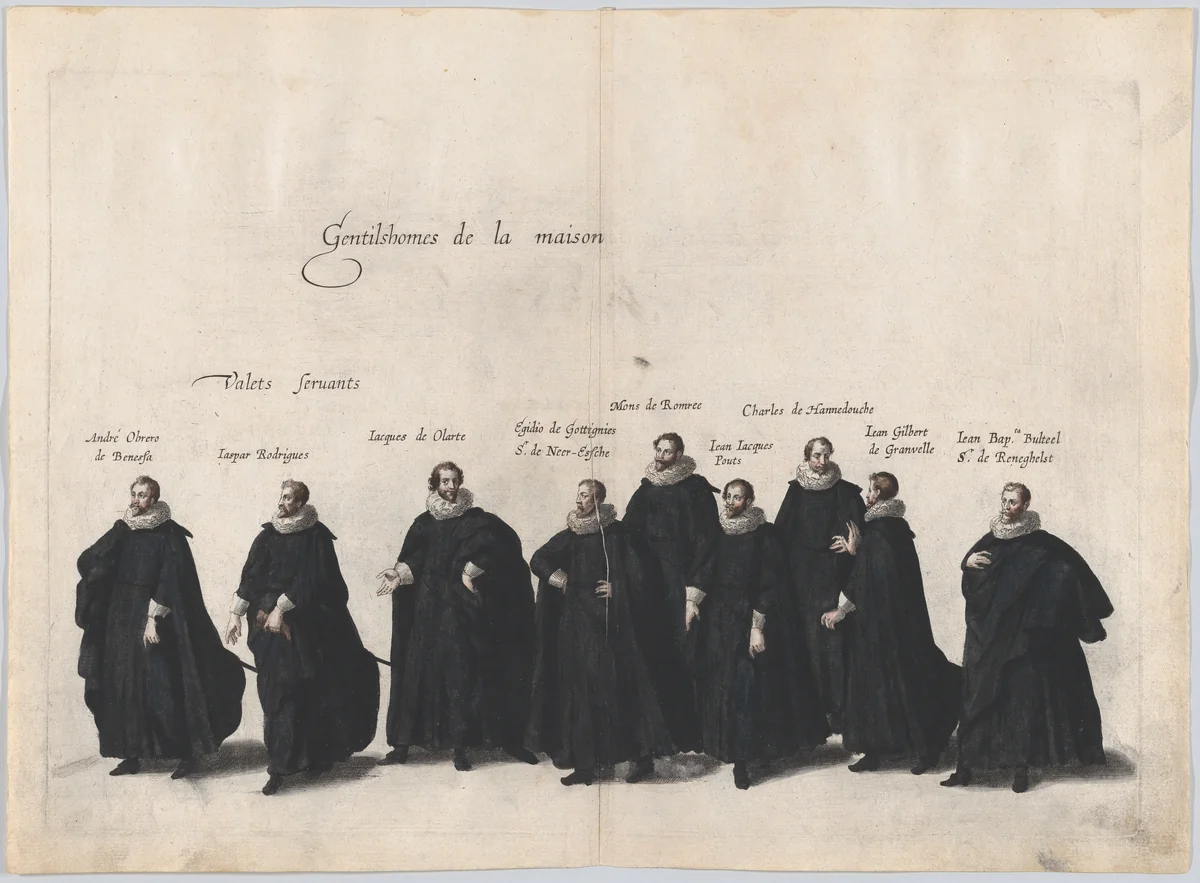 Gentilshomes de la maison
Valets ſeruants
André Obrero
de Beneſsa
Iaspar Rodrigues
Iacques de Olarte
Egidio de Gottignies
Sr. de Neer-Eſsche
Mons de Romree
Iean Iacques
Pouts
Charles de Hannedouche
Iean Gilbert
de Granvelle
Iean Bap.ta Bulteel
Sr. de Reneghelst